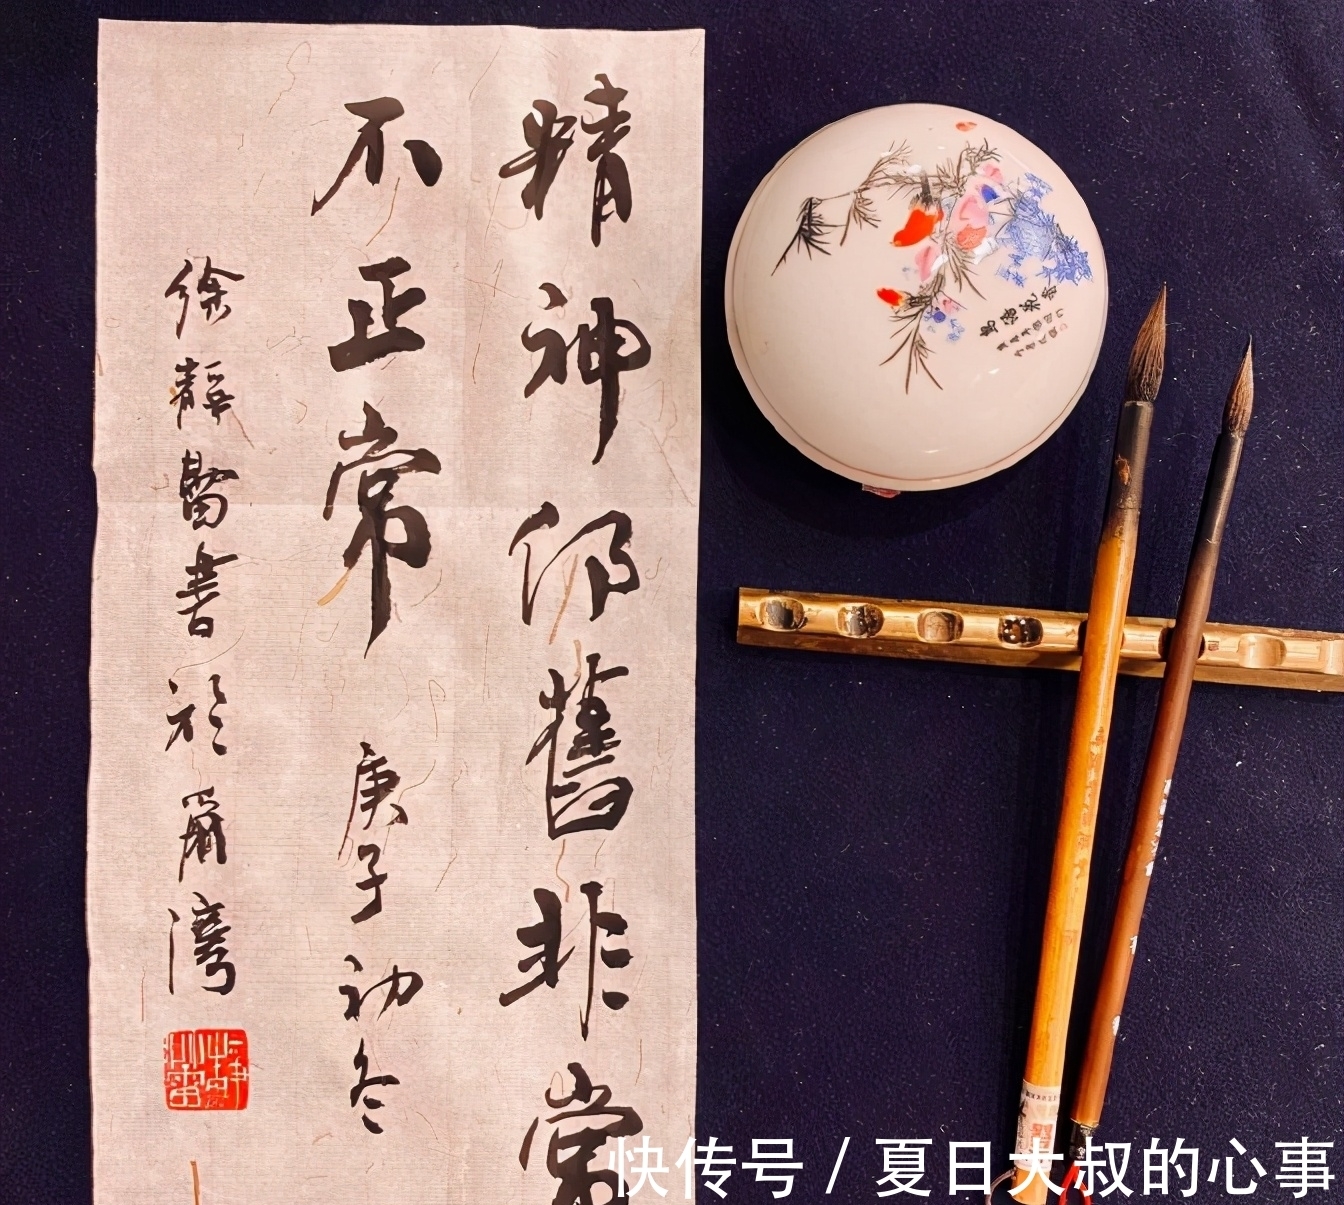 精神仍舊非常
不正常 庚子初冬
徐靜 書於 灣
快传号 / 夏日大叔的心事